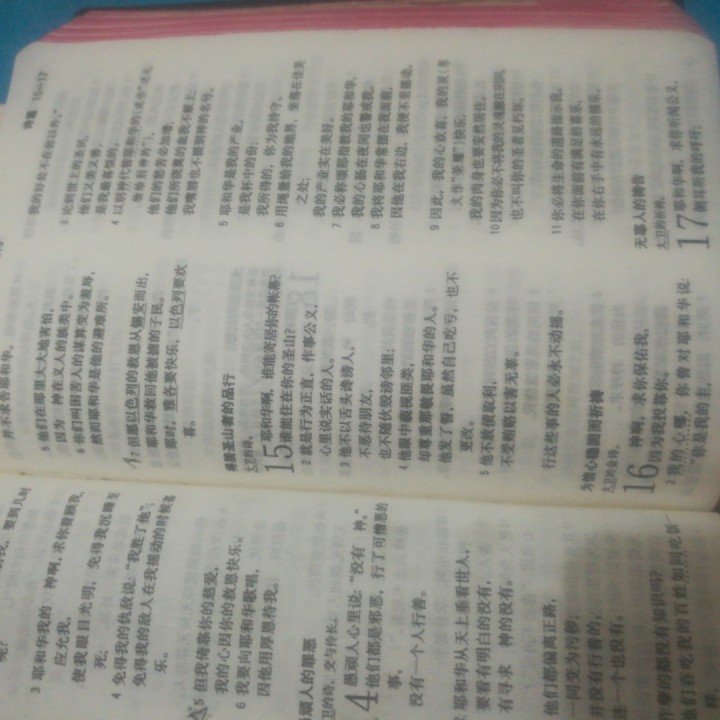 呢?
3 耶和华我的 神啊,求你看顾我,
应允我,
使我眼目光明,免得我沉睡至
死;
4 免得我的仇敌说:“我胜了他”;
免得我的敌人在我摇动的时候喜
乐。
5 但我倚靠你的慈爱,
我的心因你的救恩快乐。
6 我要向耶和华歌唱,
因他用厚恩待我。
顽人的罪恶
卫的诗,交与伶长。
愚顽人心里说:“没有 神。”
他们都是邪恶,行了可憎恶的
事,
没有一个人行善。
耶和华从天上垂看世人,
要看有明白的没有,
有寻求 神的没有。
他们都偏离正路,
一同变为污秽,
并没有行善的,
连一个也没有。
孽的都没有知识吗?
他们吞吃我的百姓如同吃饭一
并不求告耶和华。
5 他们在那里大大地害怕,
因为 神在义人的族类中。
6 你们叫困苦人的谋算变为羞辱,
然而耶和华是他的避难所。
7 但愿以色列的救恩从锡安而出,
耶和华救回他被掳的子民。
那时,雅各要快乐,以色列要欢
喜。
居圣山者的品行
大卫的诗。
15 耶和华啊,谁能寄居你的帐幕?
谁能住在你的圣山?
2 就是行为正直,作事公义,
心里说实话的人。
3 他不以舌头谗谤人,
不恶待朋友,
也不随伙毁谤邻里;
4 他眼中藐视匪类,
却尊重那敬畏耶和华的人。
他发了誓,虽然自己吃亏,也不
更改。
5 他不放债取利,
不受贿赂以害无辜。
行这些事的人必永不动摇。
为信心稳固而祈祷
大卫的金诗。
16 神啊,求你保佑我,
因为我投靠你。
2 我的心哪,你曾对耶和华说:
“你是我的主,
诗篇 15—17
我的好处不在你以外。”
3 论到世上的圣民,
他们又美又善,
是我最喜悦的。
4 以别神代替耶和华的
他们的愁苦必加增;
他们所浇奠的血我不献上;
我嘴唇也不提别神的名号。
5 耶和华是我的产业,
是我杯中的份;
我所得的,你为我持守。
6 用绳量给我的地界,坐落在佳美
之处;
我的产业实在美好。
7 我必称颂那指教我的耶和华,
我的心肠在夜间也警戒我。
8 我将耶和华常摆在我面前,
因他在我右边,我便不至摇动。
9 因此,我的心欢喜,我的灵(原
文作“荣耀”)快乐,
我的肉身也要安然居住。
10 因为你必不将我的灵魂撇在阴间,
也不叫你的圣者见朽坏。
11 你必将生命的道路指示我。
在你面前有满足的喜乐,
在你右手中有永远的福乐。
无辜人的祷告
大卫的祈祷。
17 耶和华啊,求你听闻公义,
侧耳听我的呼吁;